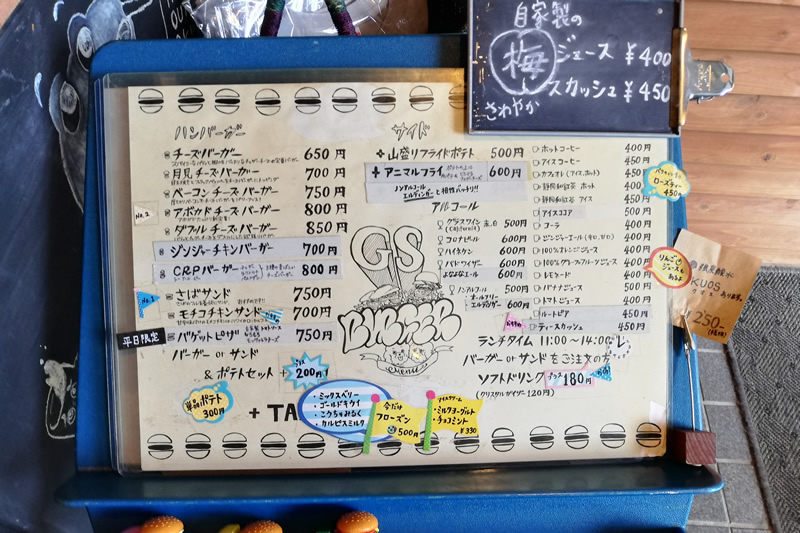 自家製の
梅ジュース ¥400
スカッシュ ¥450
さわやか
ハンバーガー
チーズバーガー 650円
月見チーズバーガー 700円
ベーコンチーズバーガー 750円
No.2
アボカドチーズバーガー 800円
ダブルチーズバーガー 850円
ジンジャーチキンバーガー 700円
CRPバーガー 800円
No.1
さばサンド 750円
モチコチキンサンド 700円
平日限定
バゲットピザ 750円
バーガー or サンド
& ポテトセット + プラス 200円
単品ポテト
300円
+ TA
・ミックスベリー
・ゴールドキウイ
・こうちゃみるく
・カルピスミルク
今だけ
フローズン
500円
アイスクリーム
・ミルクヨーグルト
・チョコミント
¥330
サイド
山盛りフライドポテト 500円
アニマルフライ 600円
ノンアルコール
エルディンガーと相性バッチリ!!
アルコール
グラスワイン 赤・白 500円
(California)
コロナビール 600円
ハイネケン 600円
バドワイザー 600円
よなよなエール 600円
ノンアルコール 500円
オールフリー
エルディンガー 600円
GS
BURGER
MENU
ホットコーヒー 400円
アイスコーヒー 450円
カフェオレ(アイス、ホット) 450円
静岡和紅茶 ホット 400円
静岡和紅茶 アイス 450円
アイスココア 500円
コーラ 400円
ジンジャーエール(辛口、甘口) 400円
100%オレンジジュース 400円
100%グレープフルーツジュース 400円
レモネード 450円
バナナジュース 500円
トマトジュース 400円
ルートビア 450円
ティースカッシュ 450円
ローズティー
450円
りんご
ジュースも
あるよ
ランチタイム 11:00〜14:00
バーガー or サンドをご注文の方
ソフトドリンク プラス180円
(クリスタルガイザー120円)
KUOS
クオス あります。
¥250-